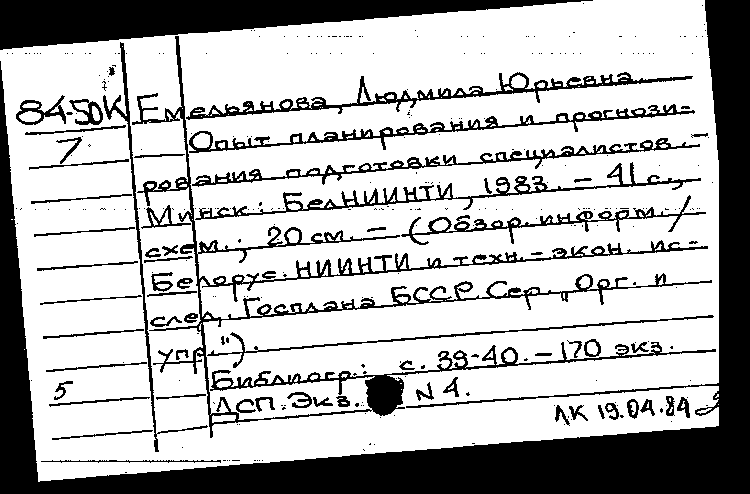 84-50К Емельянова, Людмила Юрьевна.
7 Опыт планирования и прогнози-
рования подготовки специалистов. -
Минск: БелНИИНТИ, 1983. - 41 с.,
схем.; 20 см. - (Обзор. информ. /
Белорус. НИИНТИ и техн.-экон. ис-
след. Госплана БССР. Сер. „Орг. и
упр.").
Библиогр.: с. 39-40. - 170 экз.
5 ДСП. Экз. N 4.
ЛК 19.04.84